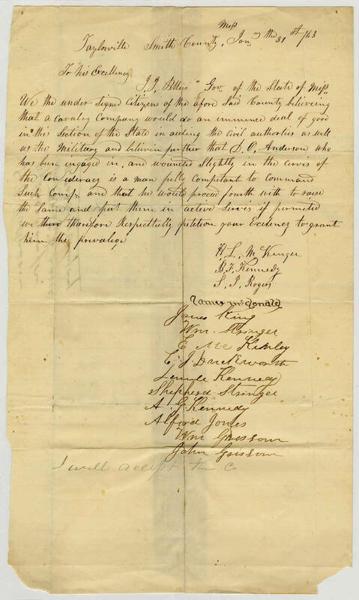 Miss
Taylorville Smith County, Jan the 31st /63
To his Excellency
J. J. Pettus Gov. of the State of Miss
We the under signed Citizens of the afore said County believing
that a cavalry Company would do an immence deal of good
in this Section of the State in aiding the civil authorities as well
as the Military and believin further that S. C. Anderson who
has been engaged in, and wounded Slightly in the cirvis of
the Confideracy is a man fully compitant to command
Such Comp. and that he would proceed fourth with to raise
the Same and put them in active Servis if permitted
we thire therefore Respectfully petition your Excelency to grant
him the privalige
W. L. M.
B. F. Kennedy
S. J. Rogers
James McDonald
James King
Wm. Stringer
E. McKinley
C. J. Duckworth
Kennedy
Shepherd Stringer
A. J. Kennedy
Alford Jones
Wm Grissom
John Grissom
I will accept the Co